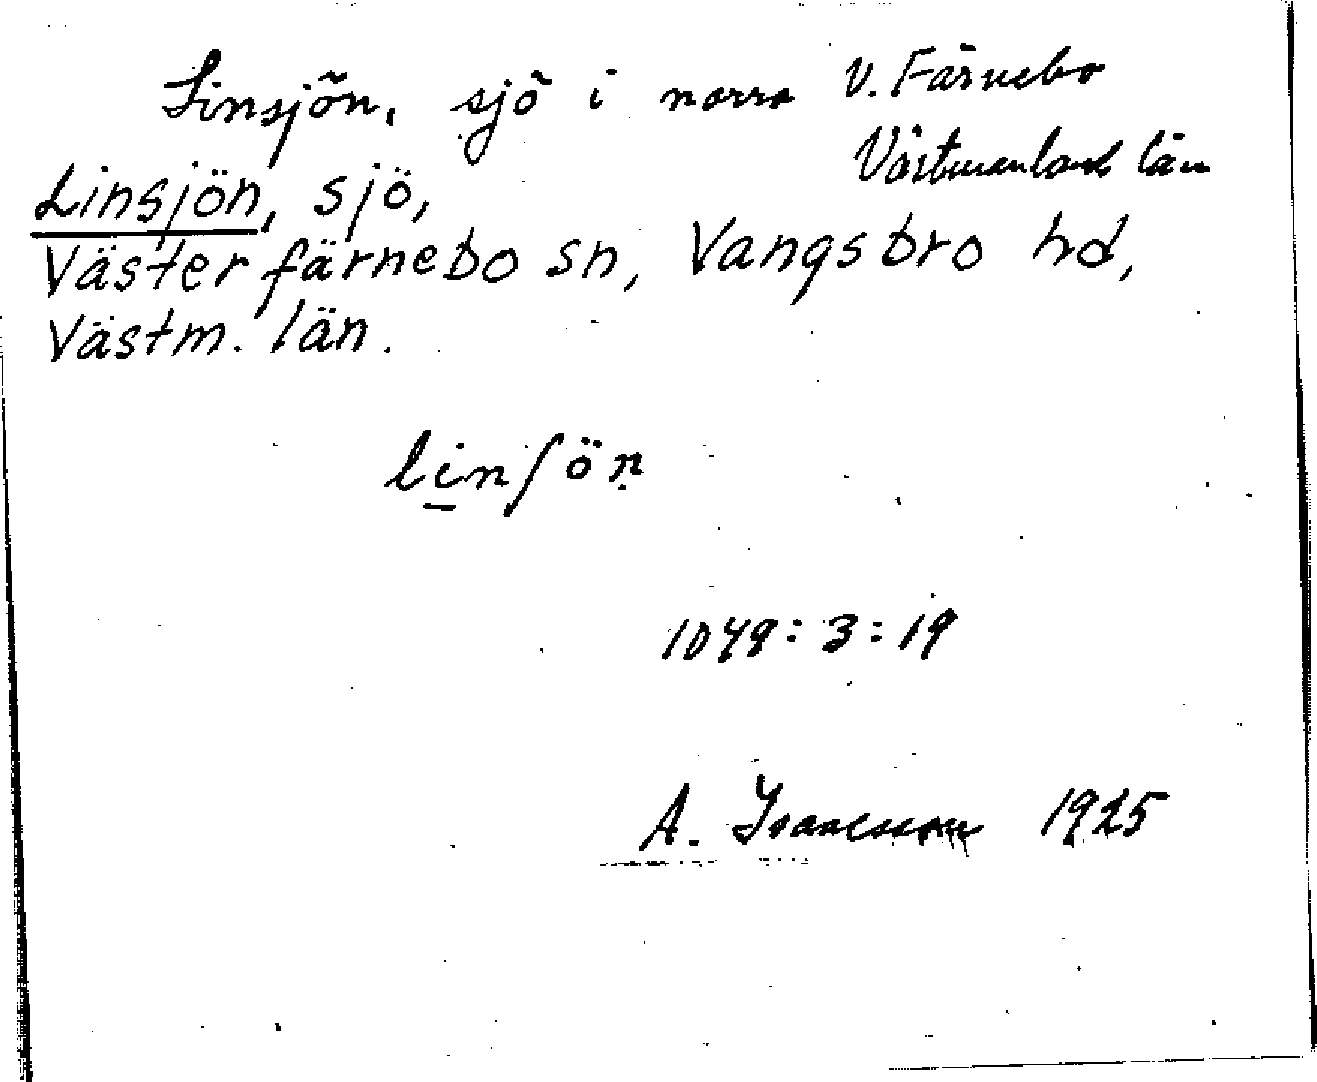 Linsjön, sjö i norra V. Färnebo
Västmanland län
Linsjön, sjö,
Västerfärnebo sn, Vangsbro hd,
Västm. län.
linʃön̥
1049:3:19
A. Isaacsson 1925